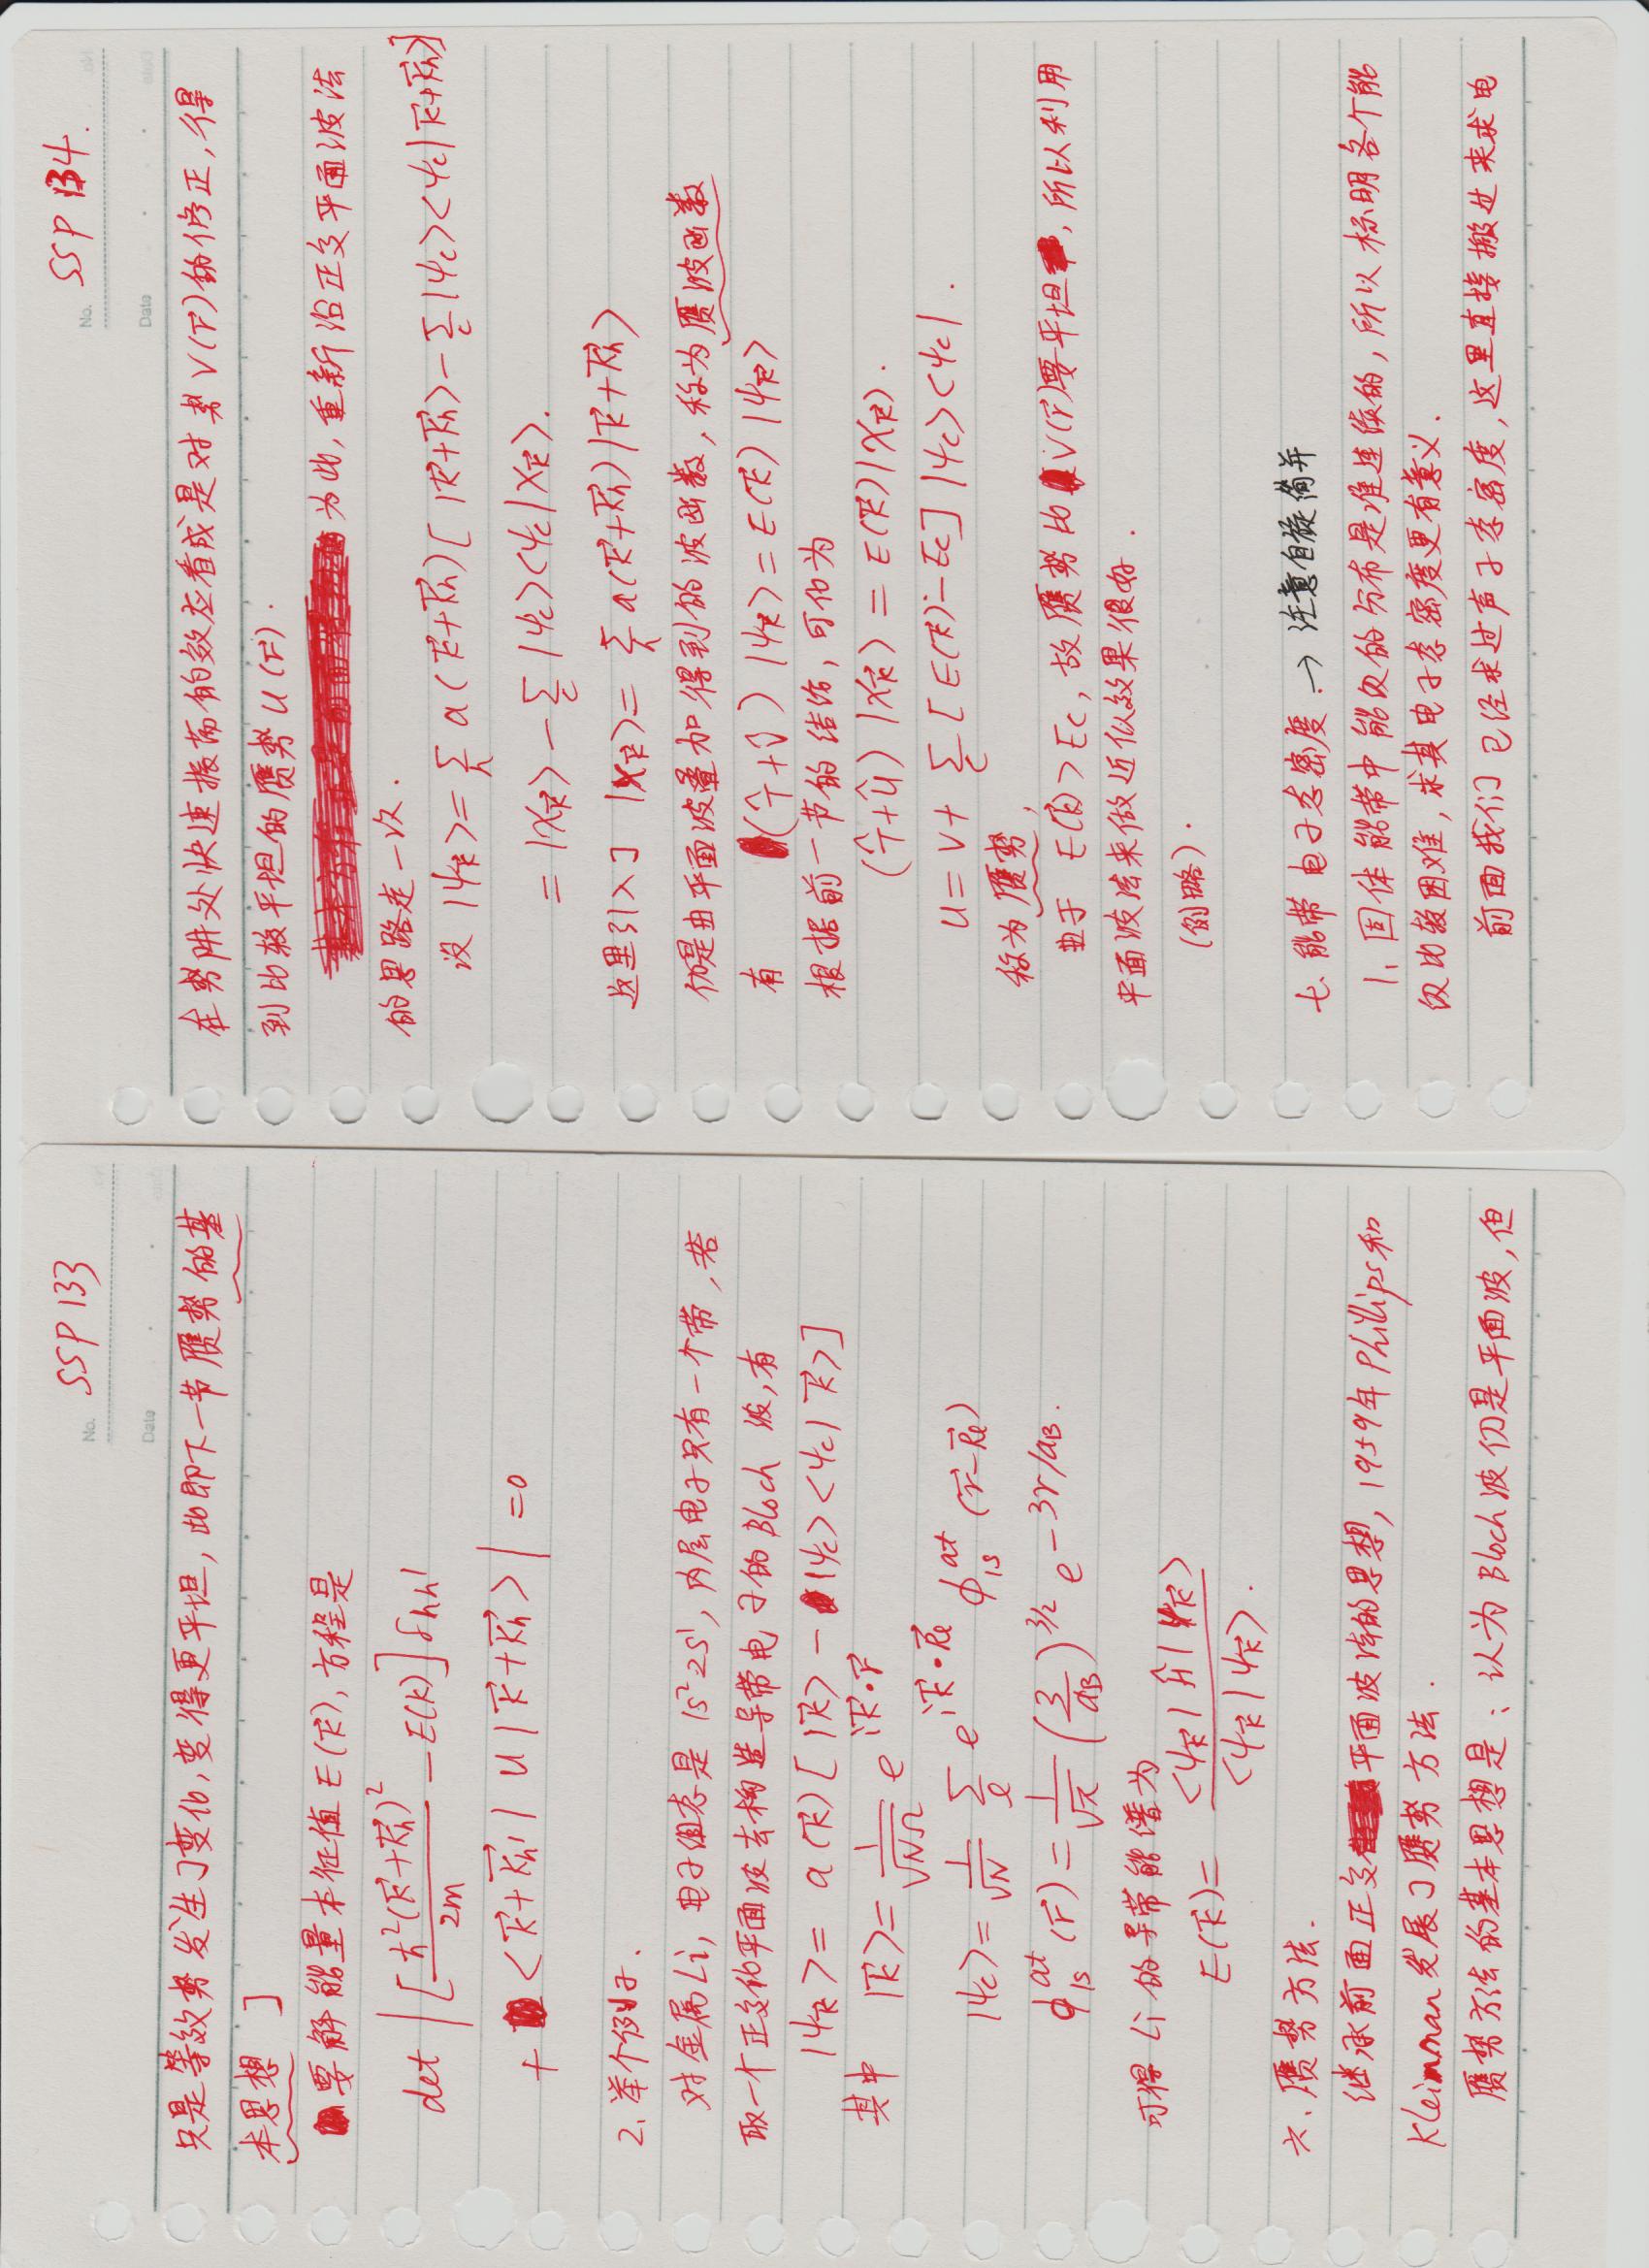 No. SSP 133
Date
只是等效势发生了变化,变得更平坦,此即下一节赝势的基
本思想 ]
要解能量本征值 E(k⃗), 方程是
det | [ ħ²(k⃗+K⃗h)² / 2m − E(k) ] δhh'
+ <k⃗+K⃗h' | U | k⃗+K⃗h> | =0
2. 举个例子.
对金属Li, 电子组态是 1s²2s¹, 内层电子只有一个带, 若
取一个正交化平面波去构造导带电子的 Bloch 波, 有
|ψk⃗> = a(k⃗) [ |k⃗> − |ψc><ψc| k⃗>]
其中 |k⃗> = 1/√NΩ e^{ik⃗·r⃗}
|ψc> = 1/√N Σ_l e^{ik⃗·R⃗l} ϕ_1s^at (r⃗−R⃗l)
ϕ_1s^at (r⃗) = 1/√π (3/aB)^{3/2} e^{−3r/aB}.
可得 Li 的导带能谱为
E(k⃗) = <ψk⃗| Ĥ | ψk⃗> / <ψk⃗ | ψk⃗>.
六. 赝势方法.
继承前面正交平面波法的思想, 1959年 Phillips 和
Kleinman 发展了赝势方法.
赝势方法的基本思想是: 认为 Bloch 波仍是平面波, 但
No. SSP 134.
Date
在势阱处快速振荡的效应看成是对势 V(r⃗) 的修正, 得
到比较平坦的赝势 U(r⃗).
为此, 重新沿正交平面波法
的思路走一次.
设 |ψk⃗> = Σ_h a(k⃗+K⃗h) [ |k⃗+K⃗h> − Σ_c |ψc><ψc| k⃗+K⃗h>]
= |χk⃗> − Σ_c |ψc><ψc|χk⃗>.
这里引入了 |χk⃗> = Σ_h a(k⃗+K⃗h) |k⃗+K⃗h>
仍是由平面波叠加得到的波函数, 称为赝波函数
有 (T̂+V̂) |ψk⃗> = E(k⃗) |ψk⃗>
根据前一节的结论, 可化为
(T̂+Û) |χk⃗> = E(k⃗) |χk⃗>.
U = V + Σ_c [E(k⃗) − Ec] |ψc><ψc|.
称为赝势,
由于 E(k⃗) > Ec, 故赝势比 V(r⃗) 要平坦, 所以利用
平面波法来做近似效果很好.
(例略).
七. 能带电子态密度. → 注意自旋简并
1. 固体能带中能级的分布是准连续的, 所以标明各个能
级比较困难, 求其电子态密度更有意义.
前面我们已经求过声子态密度, 这里直接搬过来求电